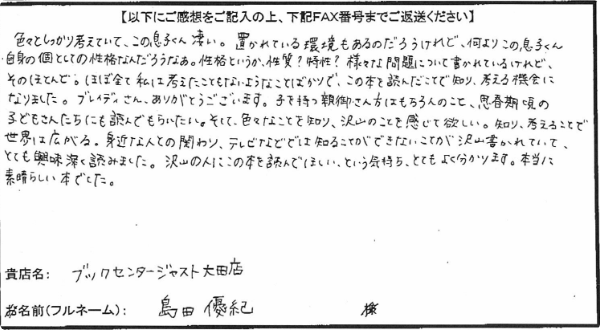 【以下にご感想をご記入の上、下記FAX番号までご返送ください】
色々としっかり考えていて、この息子くん凄い。置かれている環境もあるのだろうけれど、何よりこの息子くん
自身の個としての性格なんだろうなあ。性格というか、性質？特性？様々な問題について書かれているけれど、
そのほとんど。ほぼ全て私は考えたこともないようなことばかりで、この本を読んだことで知り、考える機会に
なりました。ブレイディさん、ありがとうございます。子を持つ親御さん方はもちろんのこと、思春期頃の
子どもさんたちにも読んでもらいたい。そして、色々なことを知り、沢山のことを感じて欲しい。知り、考えることで
世界は広がる。身近な人との関わり、テレビなどでは知ることができないことが沢山書かれていて、
とても興味深く読みました。沢山の人にこの本を読んでほしい、という気持ち、とてもよく分かります。本当に
素晴らしい本でした。
貴店名： ブックセンタージャスト大田店
お名前(フルネーム)： 島田優紀 様